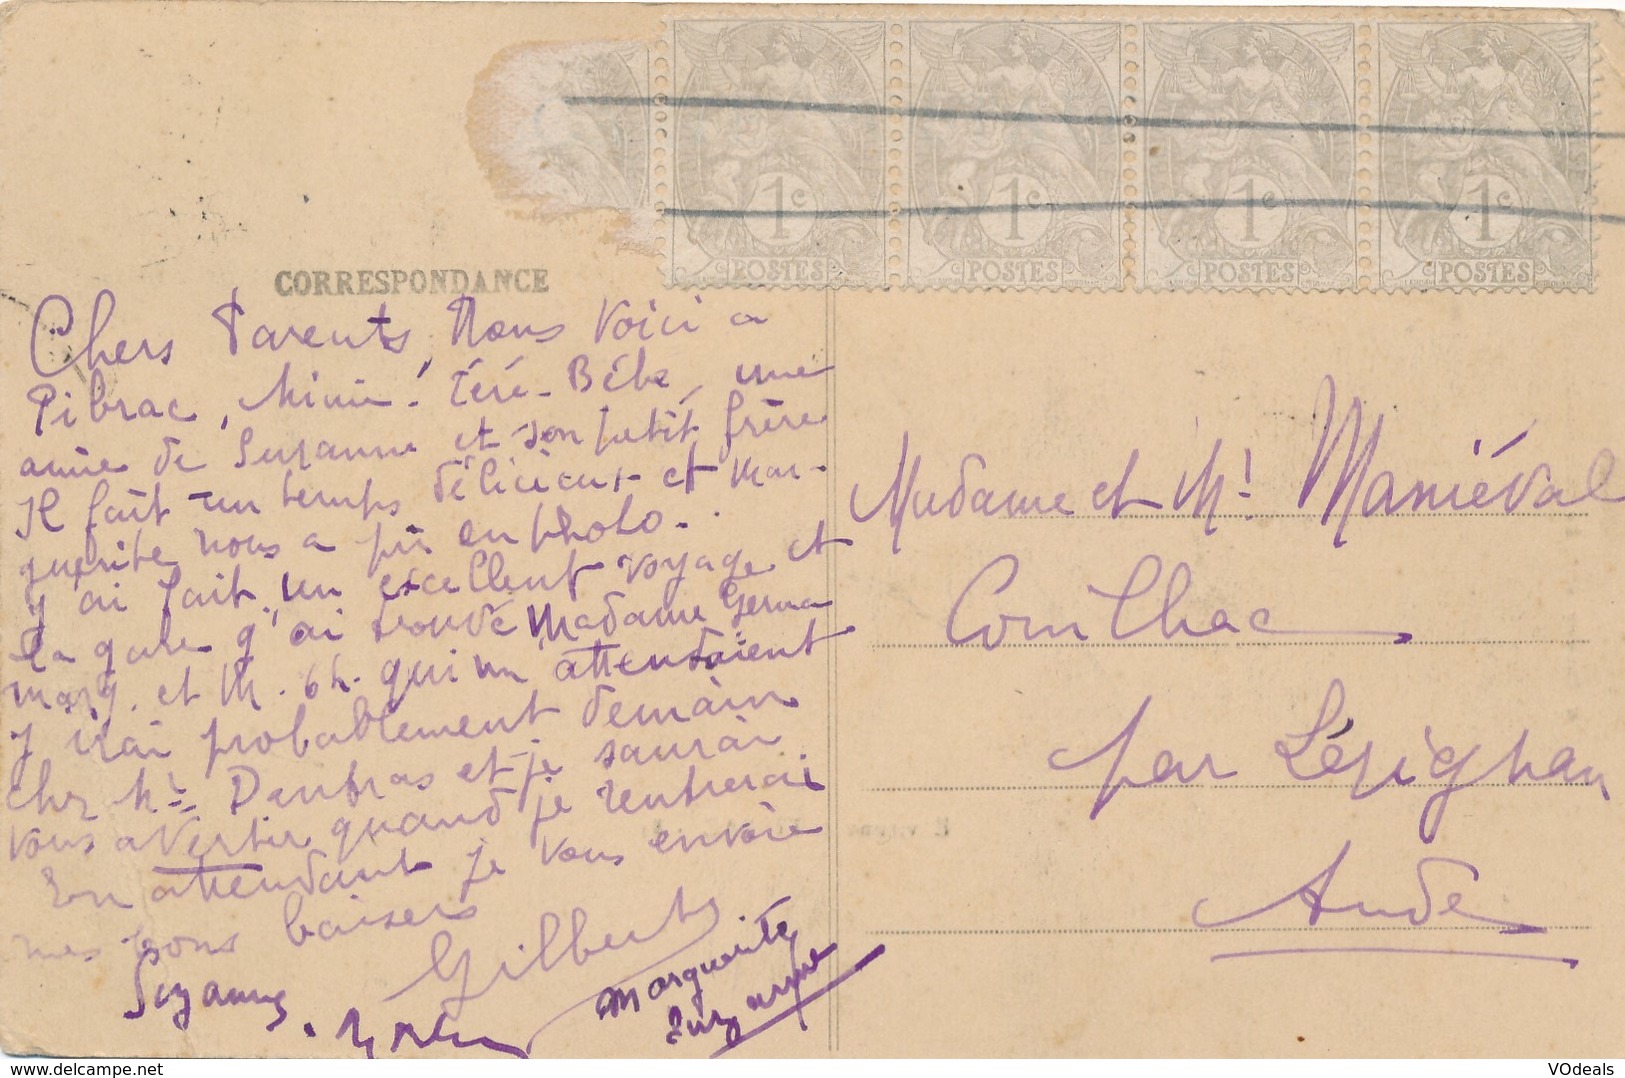 1c 1c 1c 1c
POSTES POSTES POSTES POSTES
CORRESPONDANCE
Chers Parents, Nous voici a
Pibrac, Mimi. Téré. Bébé, une
amie de Suzanne et son petit frère
Il fait un temps délicieux et Mar-
guerite nous a pris en photo.
J'ai fait un excellent voyage et
la gare j'ai trouvé Madame Germa
marg. et M. qui m'attendaient
J'irai probablement demain
chez Mr et je saurai
vous avertir quand je rentrerai
En attendant je vous envoie
mes bons baisers
Gilberte
Suzanne
Marguerite
Madame et Mr Maniéval
Couilhac
par Lézignan
Aude
www.delcampe.net
VOdeals